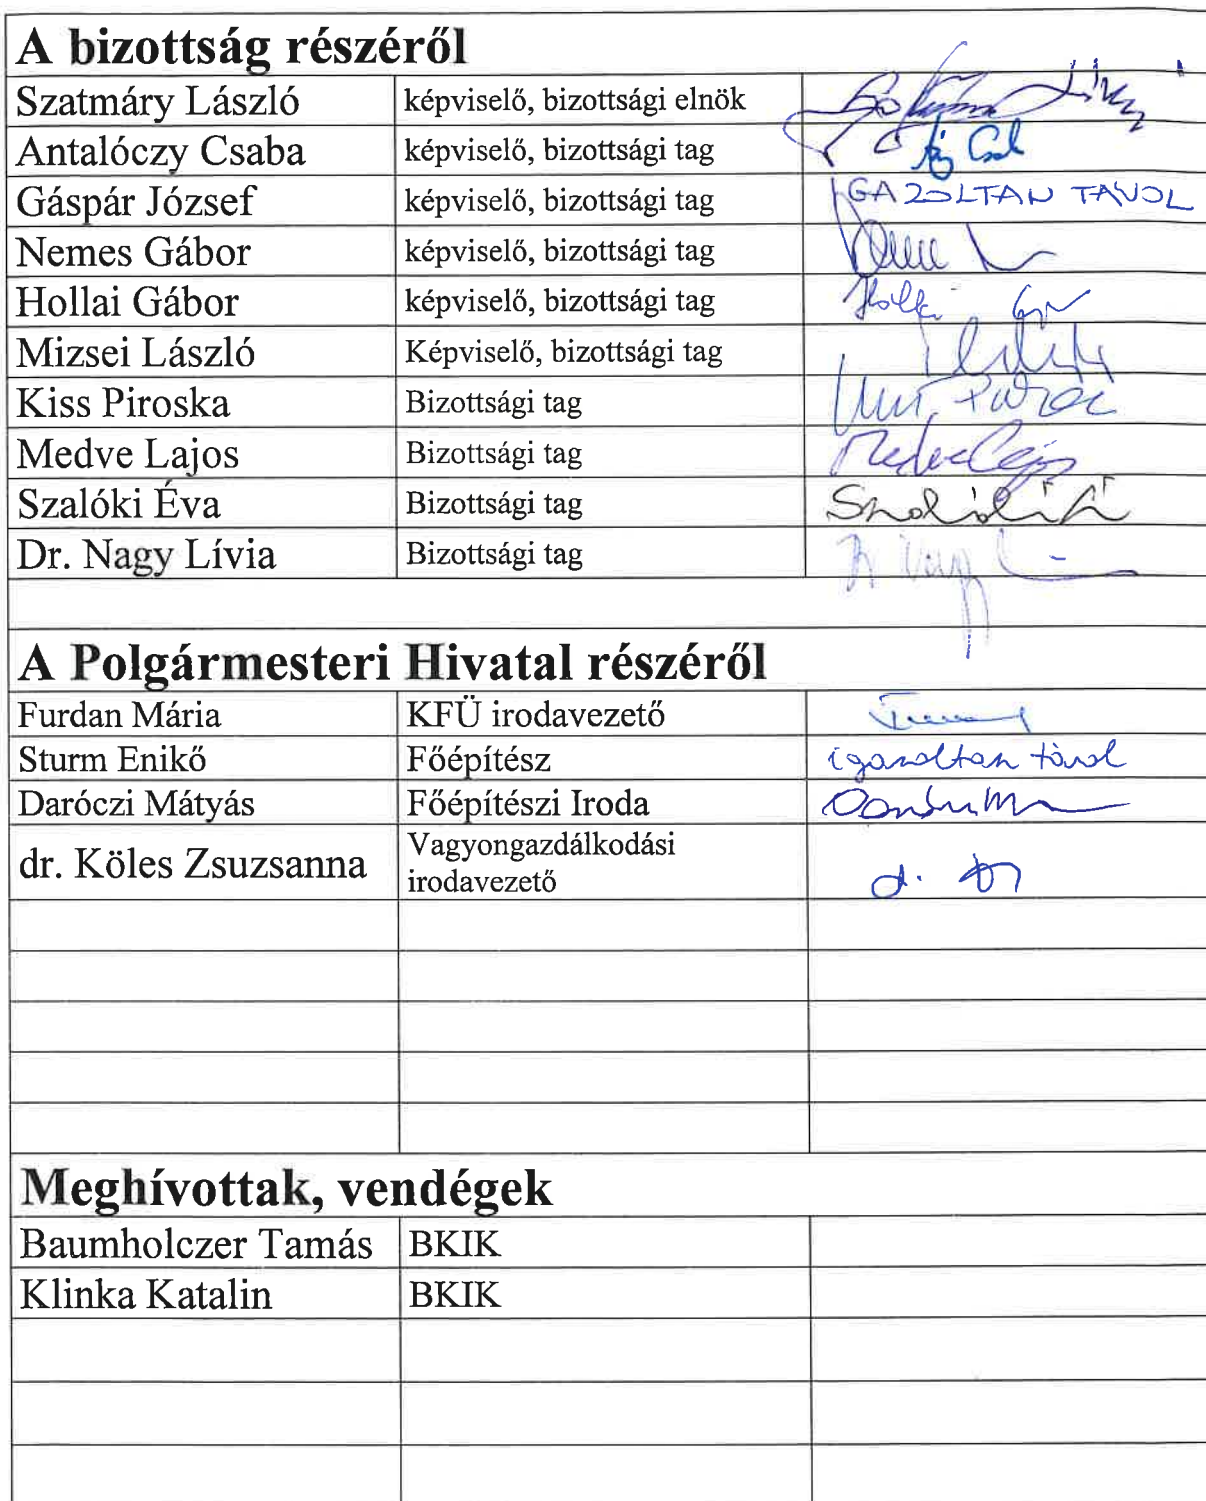 A bizottság részéről
Szatmáry László képviselő, bizottsági elnök
Antalóczy Csaba képviselő, bizottsági tag
Gáspár József képviselő, bizottsági tag IGAZOLTAN TÁVOL
Nemes Gábor képviselő, bizottsági tag
Hollai Gábor képviselő, bizottsági tag
Mizsei László Képviselő, bizottsági tag
Kiss Piroska Bizottsági tag
Medve Lajos Bizottsági tag Medve Lajos
Szalóki Éva Bizottsági tag Szalóki Éva
Dr. Nagy Lívia Bizottsági tag
A Polgármesteri Hivatal részéről
Furdan Mária KFÜ irodavezető
Sturm Enikő Főépítész igazoltan távol
Daróczi Mátyás Főépítészi Iroda
dr. Köles Zsuzsanna Vagyongazdálkodási
irodavezető
Meghívottak, vendégek
Baumholczer Tamás BKIK
Klinka Katalin BKIK